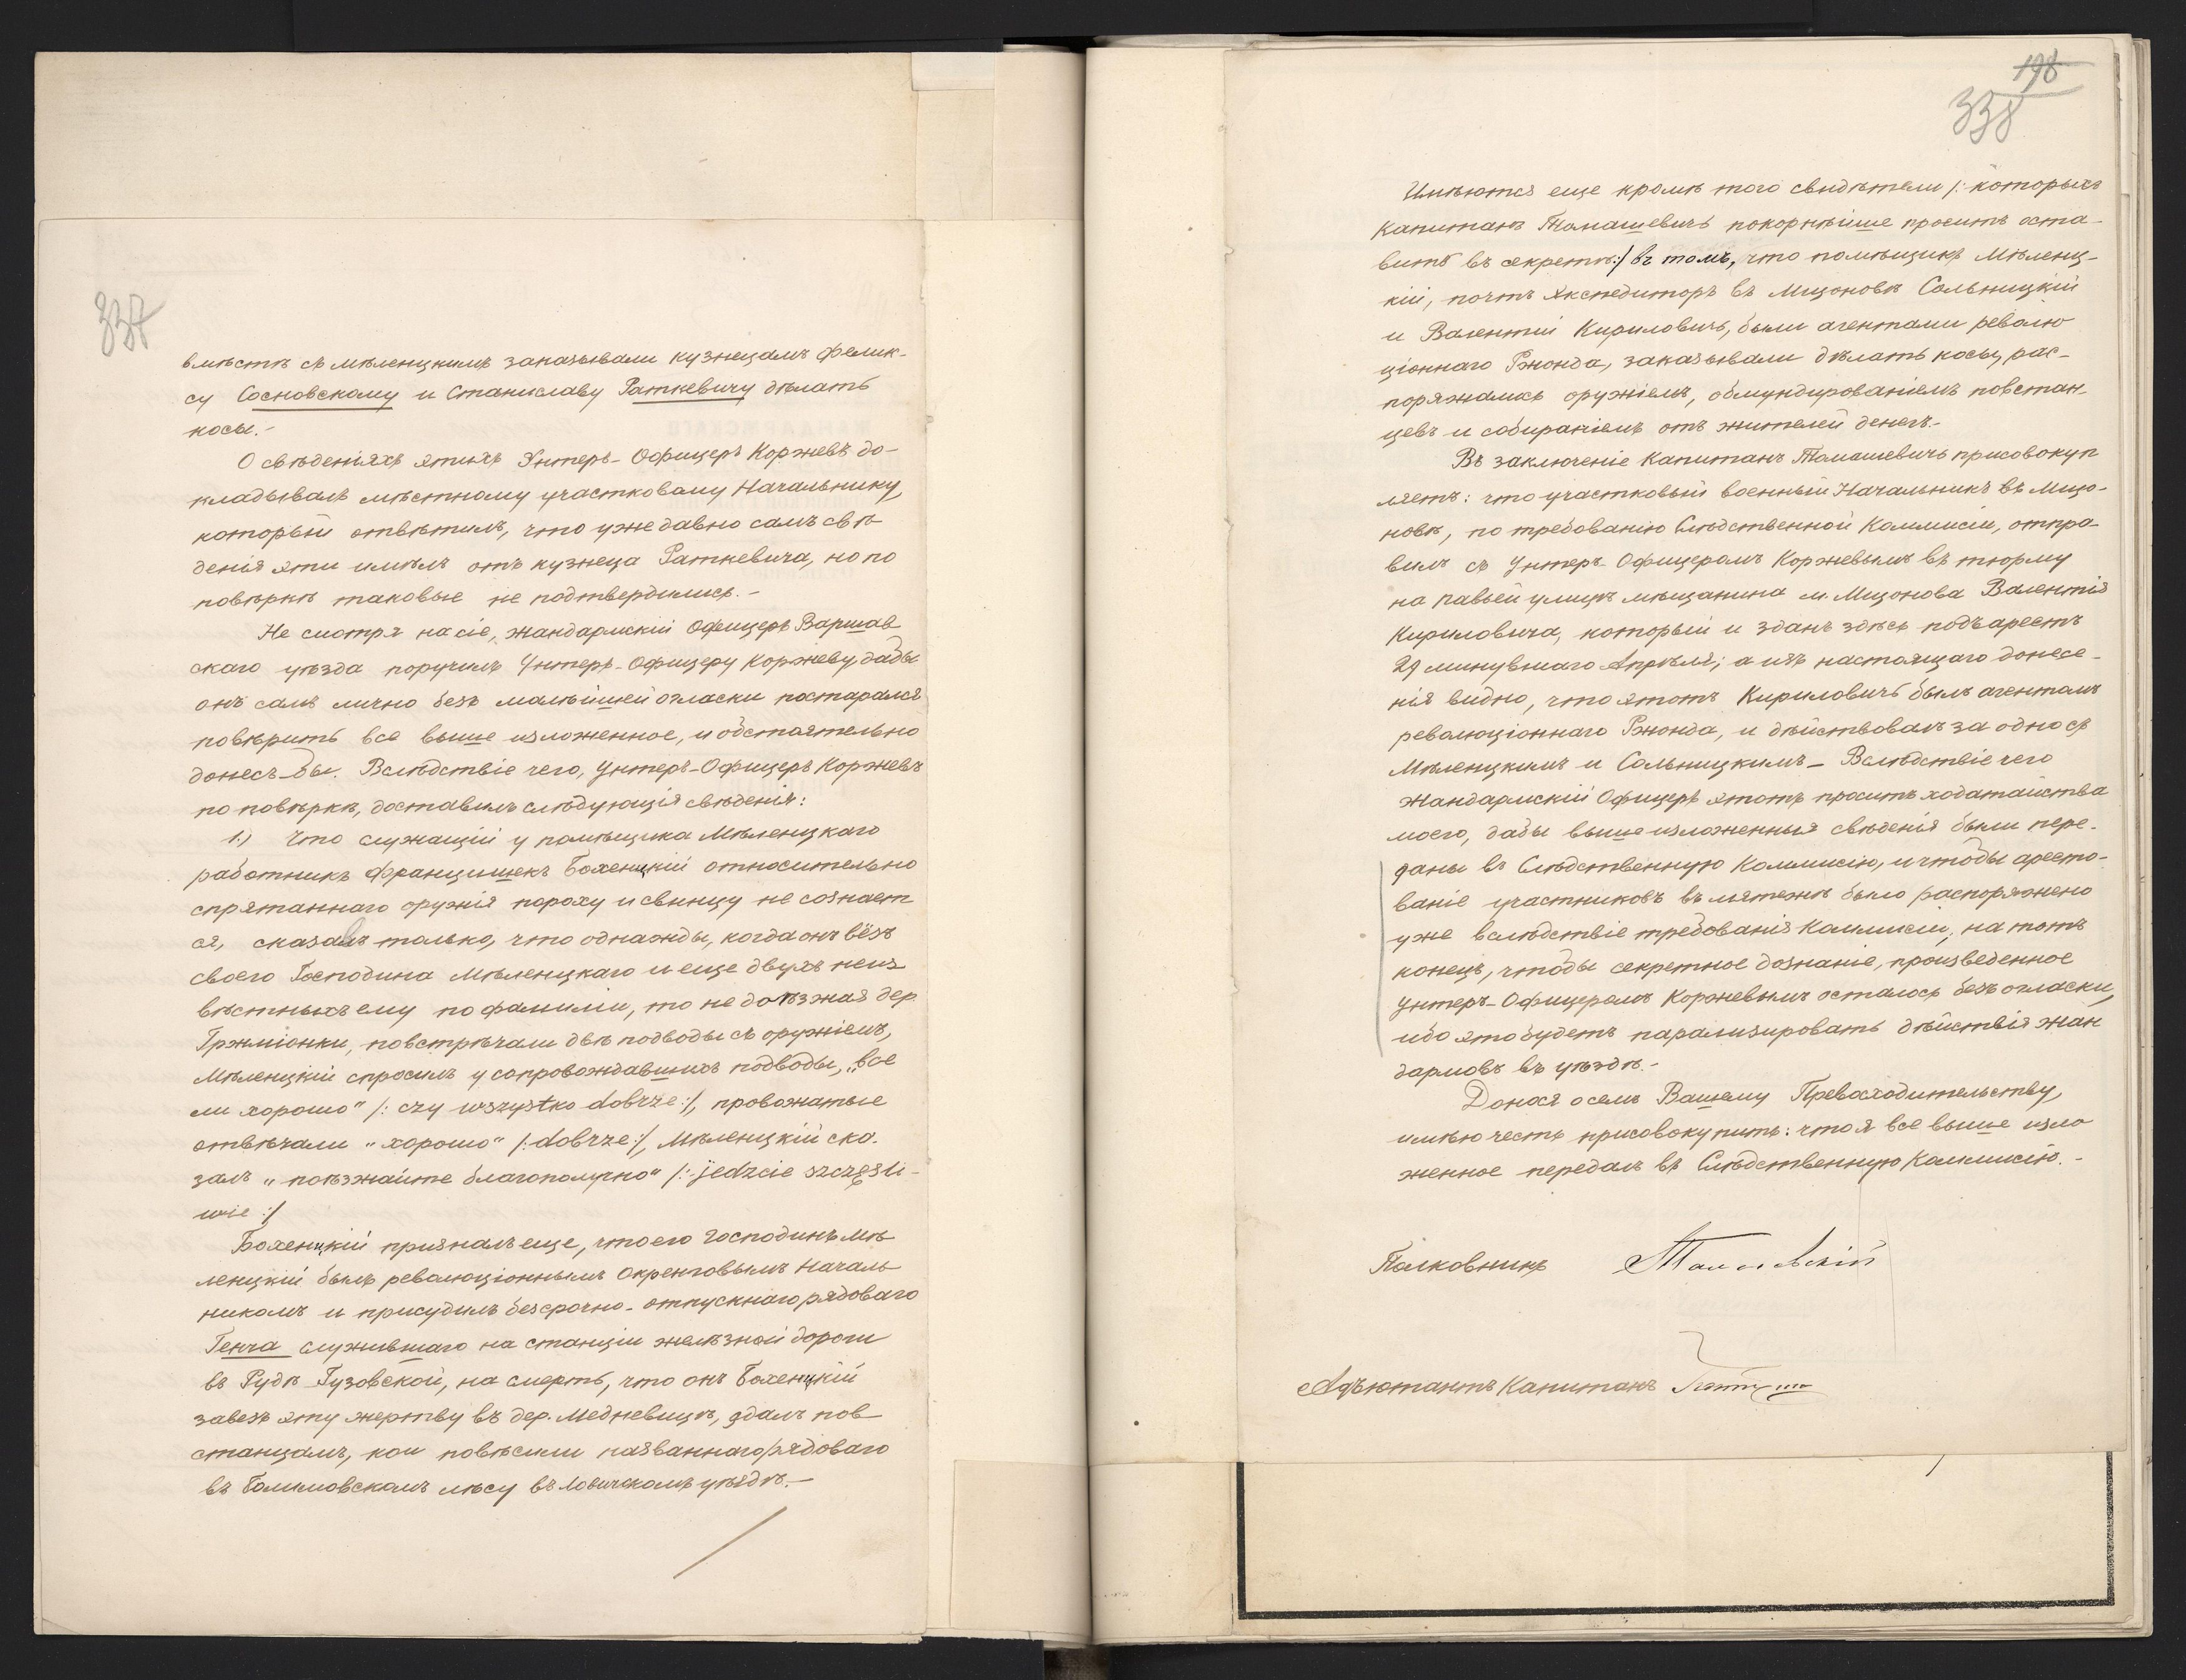 337
вмѣстѣ съ Мѣленцкимъ заказывали кузнецамъ Фелик-
су Сосновскому и Станиславу Раткевичу дѣлать
косы.-
О свѣденіяхъ этихъ Унтеръ-Офицеръ Коржевъ до-
кладывалъ мѣстному участковому Начальнику,
который отвѣтилъ, что уже давно самъ свѣ-
денія эти имѣлъ отъ кузнеца Раткевича, но по
повѣркѣ таковые не подтвердились.-
Не смотря на сіе, жандармскій Офицеръ Варшав
скаго уѣзда поручилъ Унтеръ-Офицеру Коржеву, дабы
онъ самъ лично безъ малѣйшей огласки постарался
повѣрить все выше изложенное, и обстоятельно
донесъ-бы. Вслѣдствіе чего, Унтеръ-Офицеръ Коржевъ
по повѣркѣ, доставилъ слѣдующія свѣденія:
1.) Что служащій у помѣщика Мѣленцкаго
работникъ Францишекъ Бохеницкій относительно
спрятаннаго оружія пороху и свинцу не сознает
ся, сказалъ только, что однажды, когда онъ вёзъ
своего Господина Мѣленцкаго и еще двухъ неиз
вѣстныхъ ему по фамиліи, то не доѣзжая дер.
Гржміонки, повстрѣчали двѣ подводы съ оружіемъ,
Мѣленцкій спросилъ у сопровождавшихъ подводы, „все
ли хорошо" /: czy wszystko dobrze:/, провожатые
отвѣчали „хорошо" /: dobrze:/, Мѣленцкій ска-
залъ „поѣзжайте благополучно" /: jedzcie szczęśli-
wie :/
Бохеницкій призналъ еще, что его Господинъ Мѣ
ленцкій былъ революціоннымъ Окренговымъ Началь
никомъ и присудилъ безсрочно-отпускнаго рядоваго
Генча служившаго на станціи желѣзной дороги
въ Рудѣ-Гузовской, на смерть, что онъ Бохеницкій
завезъ эту жертву въ дер. Медневицъ, здалъ пов
станцамъ, кои повѣсили названнаго рядоваго
въ Болимовскомъ лѣсу въ Ловичскомъ уѣздѣ.-
198
338
Имѣются еще кромѣ того свидѣтели /: которыхъ
Капитанъ Томашевичъ покорнѣйше проситъ оста-
вить въ секретѣ:/ въ томъ, что помѣщикъ Мѣленц-
кій, почтъ Экспедиторъ въ Мщоновѣ Сольницкій
и Валентій Кириловичъ, были агентами револю
ціоннаго Ржонда, заказывали дѣлать косы, рас-
поряжались оружіемъ, обмундированіемъ повстан-
цевъ и собираніемъ отъ жителей денегъ.-
Въ заключеніе Капитанъ Томашевичъ присовокуп
ляетъ: что участковый военный Начальникъ въ Мщо-
новѣ, по требованію Слѣдственной Коммисіи, отпра-
вилъ съ Унтеръ-Офицеромъ Коржевымъ въ тюрму
на Павьей улицѣ мѣщанина м. Мщонова Валентія
Кириловича, который и зданъ здѣсь подъ арестъ
29 минувшаго Апрѣля; а изъ настоящаго донесе-
нія видно, что этотъ Кириловичъ былъ агентомъ
революціоннаго Ржонда, и дѣйствовалъ за одно съ
Мѣленцкимъ и Сольницкимъ- Вслѣдствіе чего
Жандармскій Офицеръ этотъ проситъ ходатайства
моего, дабы выше изложенныя свѣденія были пере-
даны въ Слѣдственную Коммисію, и чтобы аресто-
ваніе участниковъ въ мятежѣ было распоряжено
уже вслѣдствіе требованія Коммисіи, на тотъ
конецъ, чтобы секретное дознаніе, произведенное
Унтеръ-Офицеромъ Коржевымъ осталось безъ огласки,
ибо это будетъ парализировать дѣйствія жан
дармовъ въ уѣздѣ.-
Донося о семъ Вашему Превосходительству,
имѣю честь присовокупить: что я все выше изло
женное передалъ въ Слѣдственную Коммисію.-
Полковникъ
Адъютантъ Капитанъ